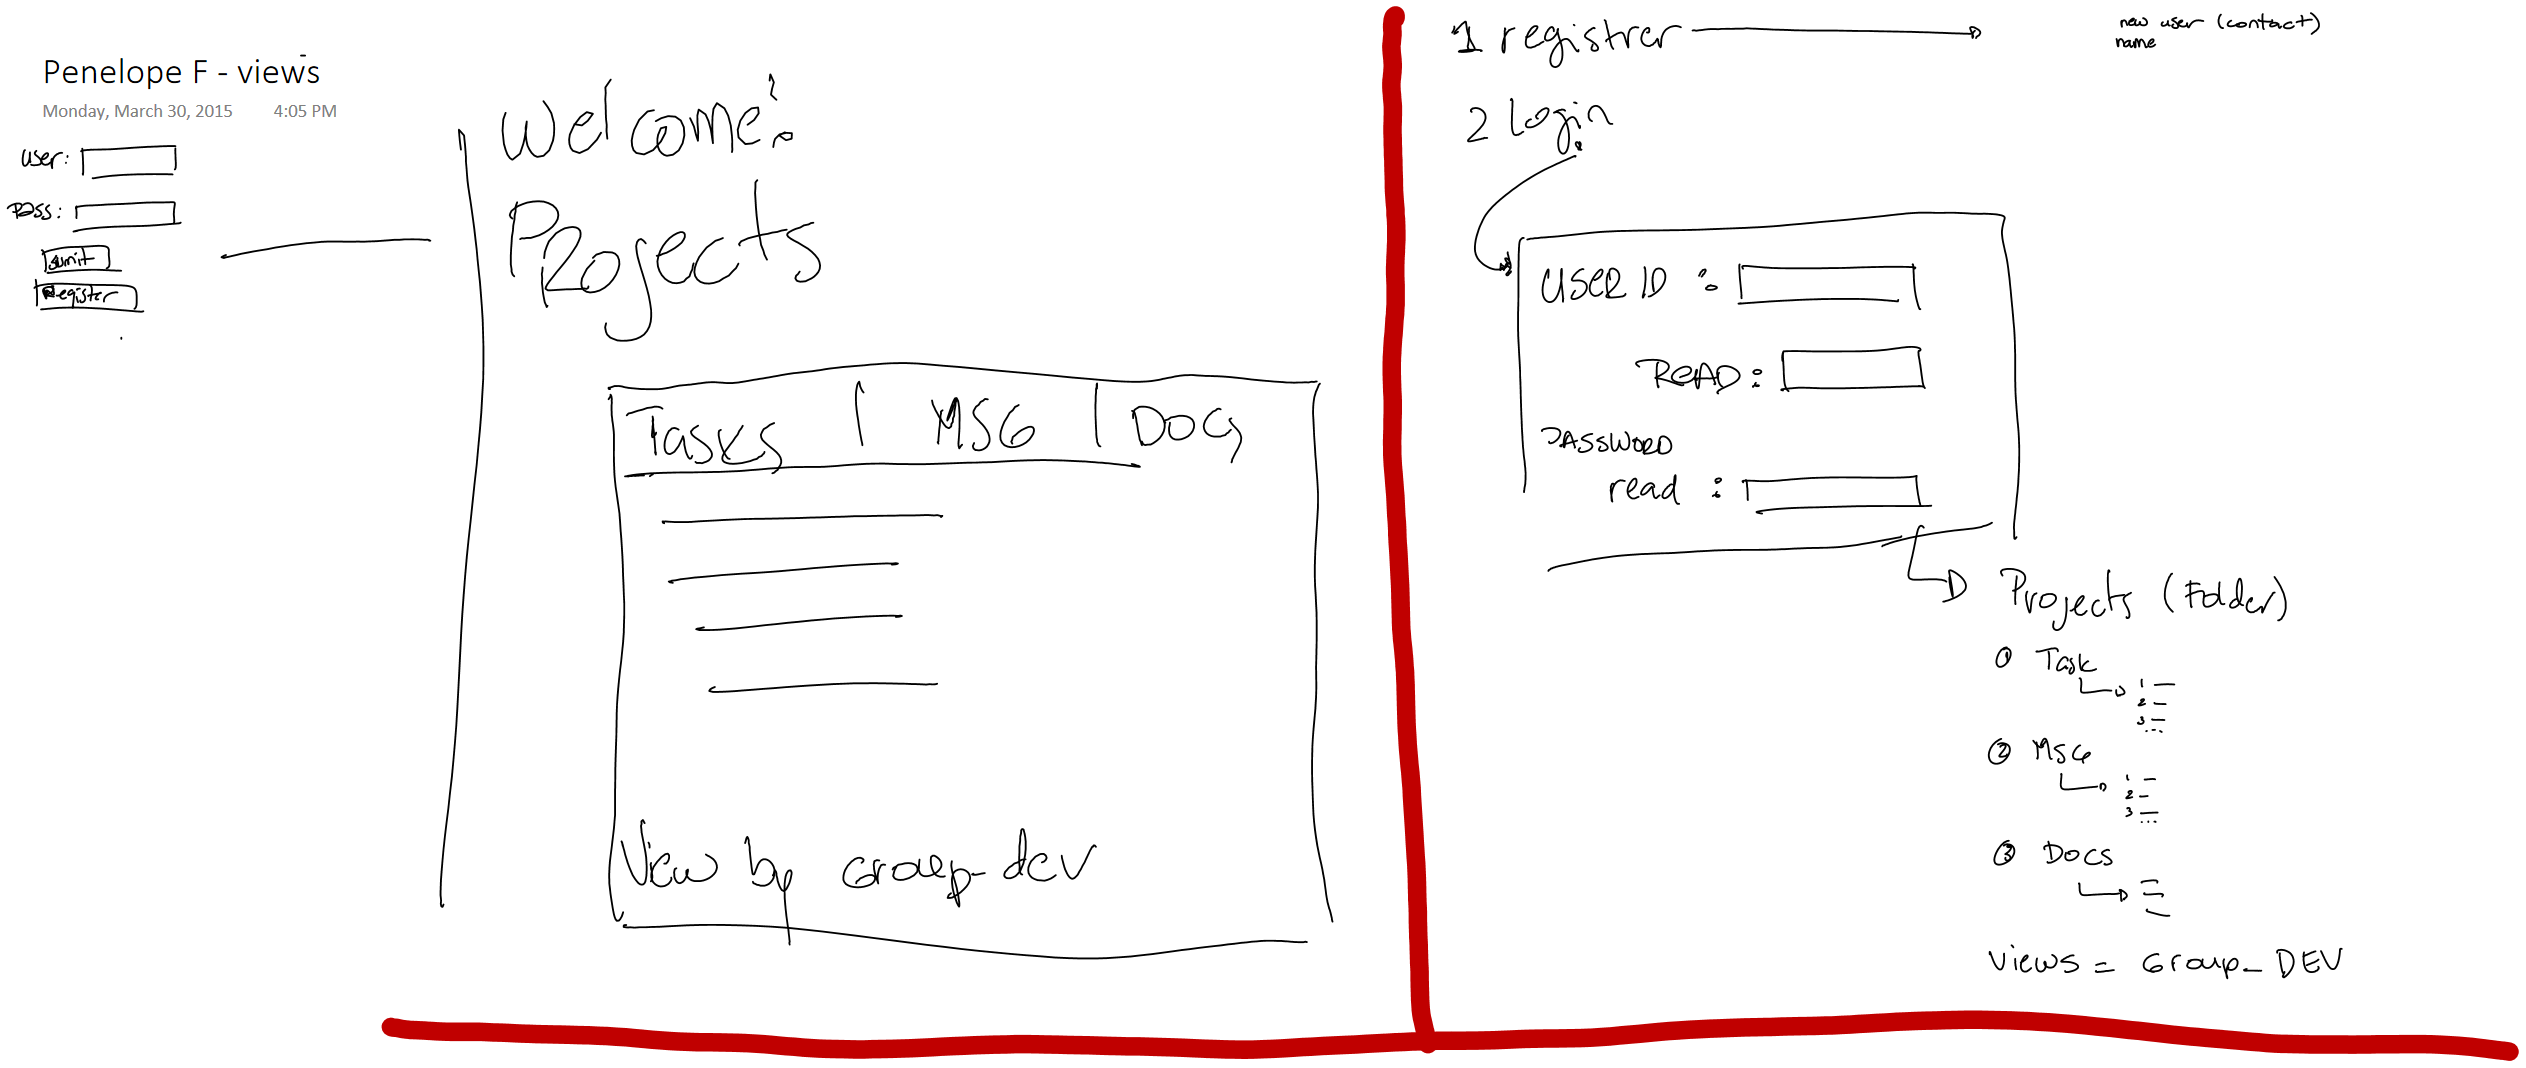 Penelope F - views
Monday, March 30, 2015 4:05 PM
user:
Pass:
sumit
Register
Welcome:
Projects
Tasks | MSG | Docs
View by Group_dev
1 registrer
new user (contact)
name
2 Login
USER ID :
READ :
PASSWORD
read :
Projects (Folder)
① Task
1
2
3
...
② MSG
1
2
3
...
③ Docs
views = Group_DEV